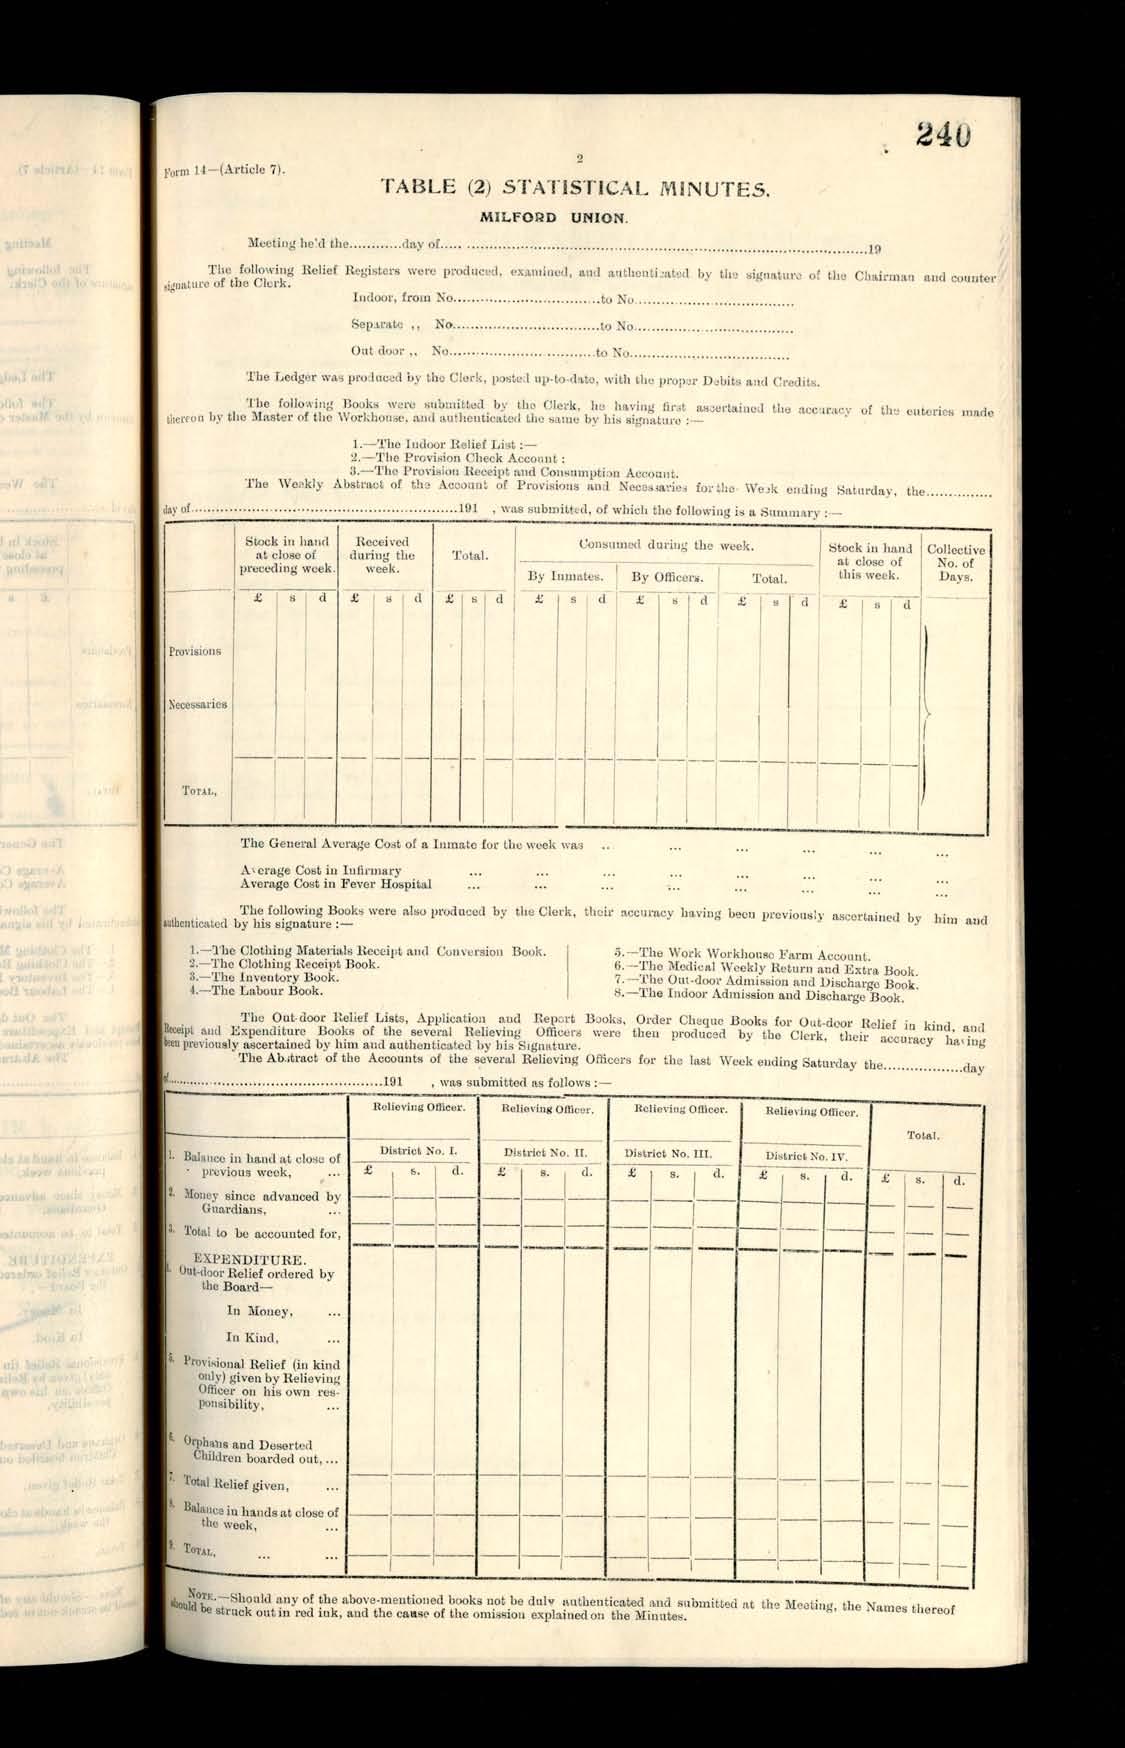 240
2
Form 14—(Article 7).
TABLE (2) STATISTICAL MINUTES.
MILFORD UNION.
Meeting he'd the............day of..... ..........................................................................................19
The following Relief Registers were produced, examined, and authenticated by the signature of the Chairman and counter
signature of the Clerk.
Indoor, from No.................................to No....................................
Separate ,, No.................................to No....................................
Out door ,, No.................................to No....................................
The Ledger was produced by the Clerk, posted up-to-date, with the proper Debits and Credits.
The following Books were submitted by the Clerk, he having first ascertained the accuracy of the enteries made
thereon by the Master of the Workhouse, and authenticated the same by his signature :—
1.—The Indoor Relief List :—
2.—The Provision Check Account :
3.—The Provision Receipt and Consumption Account.
The Weekly Abstract of the Account of Provisions and Necessaries for the Week ending Saturday, the...............
day of............................................................191 , was submitted, of which the following is a Summary :—
Stock in hand at close of preceding week. Received during the week. Total. Consumed during the week. Stock in hand at close of this week. Collective No. of Days.
By Inmates. By Officers. Total.
£ s d £ s d £ s d £ s d £ s d £ s d £ s d
Provisions
Necessaries
TOTAL,
The General Average Cost of a Inmate for the week was .. ... ... ... ...
Average Cost in Infirmary ... ... ... ... ... ... ... ...
Average Cost in Fever Hospital ... ... ... ... ... ... ... ...
The following Books were also produced by the Clerk, their accuracy having been previously ascertained by him and
authenticated by his signature :—
1.—The Clothing Materials Receipt and Conversion Book.
2.—The Clothing Receipt Book.
3.—The Inventory Book.
4.—The Labour Book.
5.—The Work Workhouse Farm Account.
6.—The Medical Weekly Return and Extra Book.
7.—The Out-door Admission and Discharge Book.
8.—The Indoor Admission and Discharge Book.
The Out-door Relief Lists, Application and Report Books, Order Cheque Books for Out-door Relief in kind, and
Receipt and Expenditure Books of the several Relieving Officers were then produced by the Clerk, their accuracy having
been previously ascertained by him and authenticated by his Signature.
The Abstract of the Accounts of the several Relieving Officers for the last Week ending Saturday the..................day
of................................................191 , was submitted as follows :—
Relieving Officer. Relieving Officer. Relieving Officer. Relieving Officer. Total.
District No. I. District No. II. District No. III. District No. IV.
£ s. d. £ s. d. £ s. d. £ s. d. £ s. d.
1. Balance in hand at close of
previous week, ...
2. Money since advanced by
Guardians, ...
3. Total to be accounted for,
EXPENDITURE.
4. Out-door Relief ordered by
the Board—
In Money, ...
In Kind, ...
5. Provisional Relief (in kind
only) given by Relieving
Officer on his own res-
ponsibility, ...
6. Orphans and Deserted
Children boarded out, ...
7. Total Relief given, ...
8. Balance in hands at close of
the week, ...
9. TOTAL, ... ...
NOTE.—Should any of the above-mentioned books not be duly authenticated and submitted at the Meeting, the Names thereof
should be struck out in red ink, and the cause of the omission explained on the Minutes.